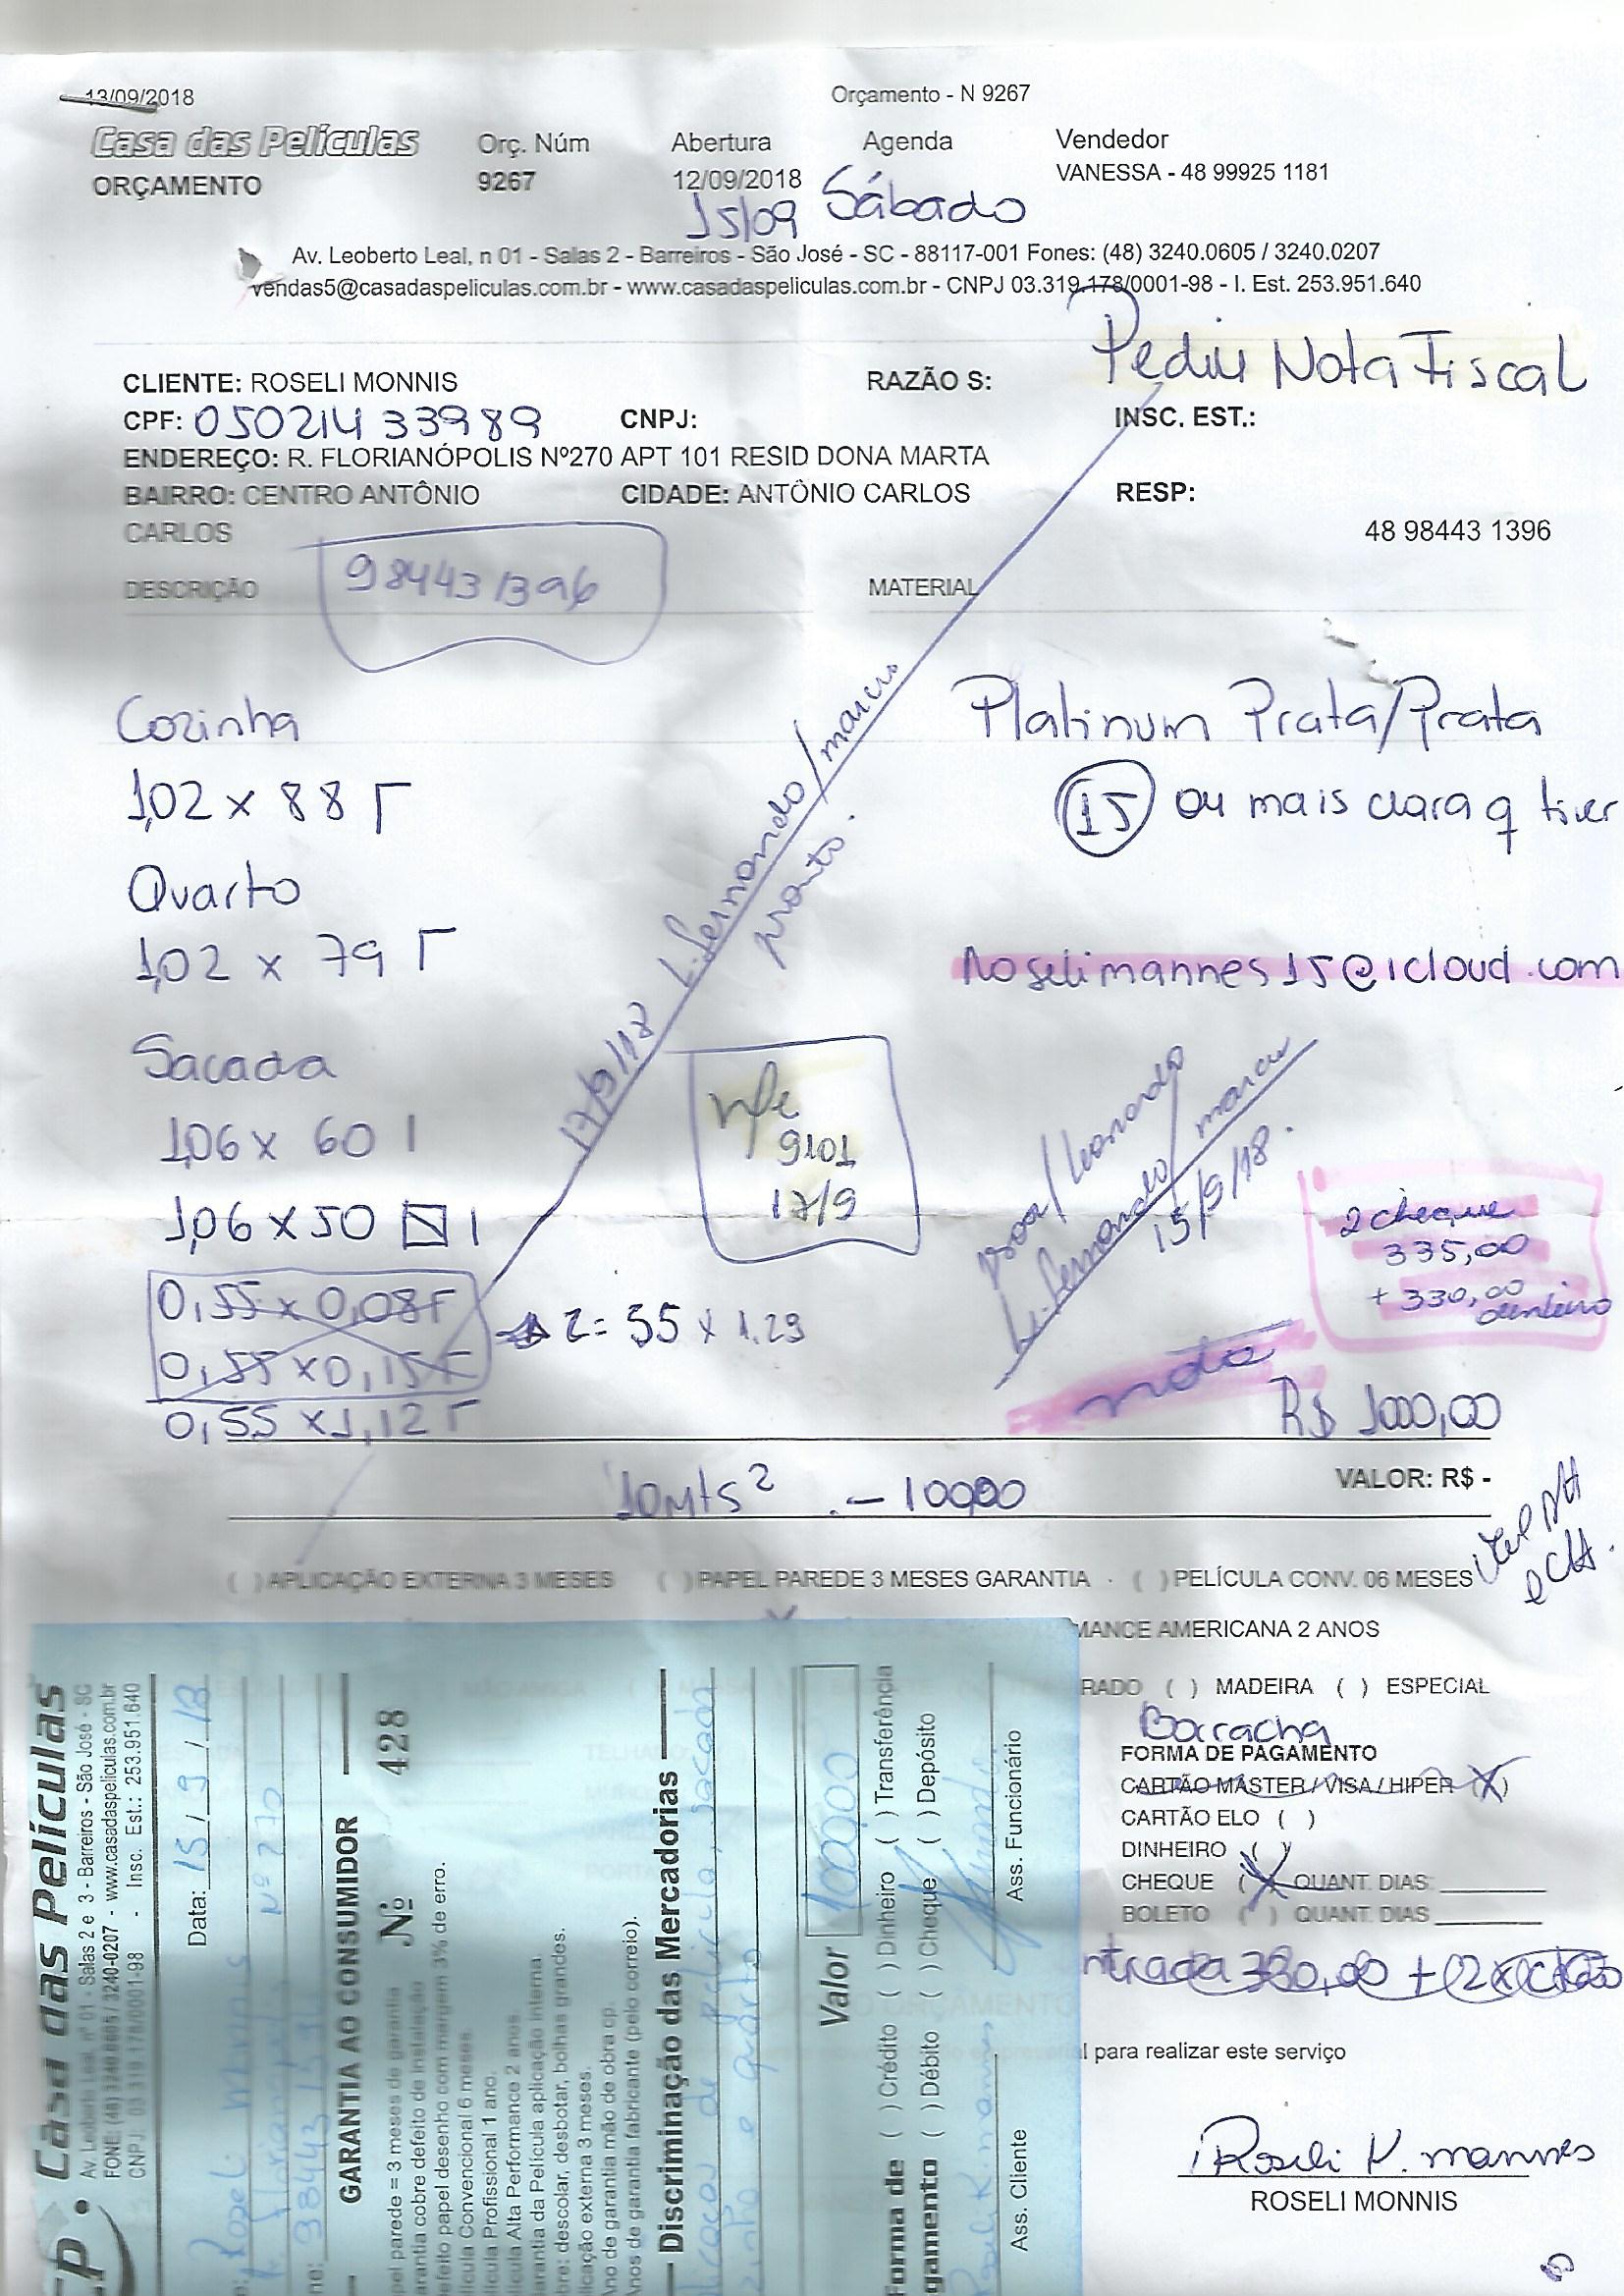 13/09/2018 Orçamento - N 9267
Casa das Películas Orç. Núm Abertura Agenda Vendedor
ORÇAMENTO 9267 12/09/2018 VANESSA - 48 99925 1181
15/09 Sábado
Av. Leoberto Leal, n 01 - Salas 2 - Barreiros - São José - SC - 88117-001 Fones: (48) 3240.0605 / 3240.0207
vendas5@casadaspeliculas.com.br - www.casadaspeliculas.com.br - CNPJ 03.319.178/0001-98 - I. Est. 253.951.640
Pediu Nota Fiscal
CLIENTE: ROSELI MONNIS RAZÃO S:
CPF: 05021433989 CNPJ: INSC. EST.:
ENDEREÇO: R. FLORIANÓPOLIS Nº270 APT 101 RESID DONA MARTA
BAIRRO: CENTRO ANTÔNIO CIDADE: ANTÔNIO CARLOS RESP:
CARLOS 48 98443 1396
984431396
DESCRIÇÃO MATERIAL
Cozinha Platinum Prata/Prata
1,02 x 88 Γ 15 ou mais clara q tiver
Quarto
1,02 x 79 Γ Roselimannes15@icloud.com
17/9/18 L. fernando/marcio
pronto.
Sacada
1,06 x 60 |
nfe
9101
17/9
/leonardo
L. fernando/marcio
15/9/18.
1,06 x 50 |
2 cheque
335,00
+ 330,00
dinheiro
0,55 x 0,08 Γ
0,55 x 0,15 Γ
2 = 55 x 1.29
0,55 x 1,12 Γ
nota
R$ 1000,00
10mts² - 1000,00 VALOR: R$ -
( ) APLICAÇÃO EXTERNA 3 MESES ( ) PAPEL PAREDE 3 MESES GARANTIA ( ) PELÍCULA CONV. 06 MESES
MANCE AMERICANA 2 ANOS
RADO ( ) MADEIRA ( ) ESPECIAL
Borracha
FORMA DE PAGAMENTO
CARTÃO MASTER / VISA / HIPER (X)
CARTÃO ELO ( )
DINHEIRO ( )
CHEQUE (X) QUANT. DIAS:
BOLETO ( ) QUANT. DIAS
ntrada 330,00 + (2x
l para realizar este serviço
Roseli K. mannes
ROSELI MONNIS
CP. Casa das Películas
Av. Leoberto Leal, nº 01 - Salas 2 e 3 - Barreiros - São José - SC
FONE: (48) 3240.0605 / 3240-0207 - www.casadaspeliculas.com.br
CNPJ. 03.319.178/0001-98 - Insc. Est.: 253.951.640
Data: 15/9/18
Roseli Monnis
Florianópolis Nº 270
ne: 98443 1396
GARANTIA AO CONSUMIDOR Nº 428
pel parede = 3 meses de garantia
arantia cobre defeito de instalação
efeito papel desenho com margem 3% de erro.
lícula Convencional 6 meses.
lícula Profissional 1 ano.
ícula Alta Performance 2 anos.
arantia da Película aplicação interna
bre: descolar, desbotar, bolhas grandes.
licação externa 3 meses.
no de garantia mão de obra cp.
nos de garantia fabricante (pelo correio).
Discriminação das Mercadorias
licação de película, sacada
zinha e quarto
Valor 1000,00
orma de ( ) Crédito ( ) Dinheiro ( ) Transferência
gamento ( ) Débito ( ) Cheque ( ) Depósito
Roseli K. mannes
Ass. Cliente Ass. Funcionário